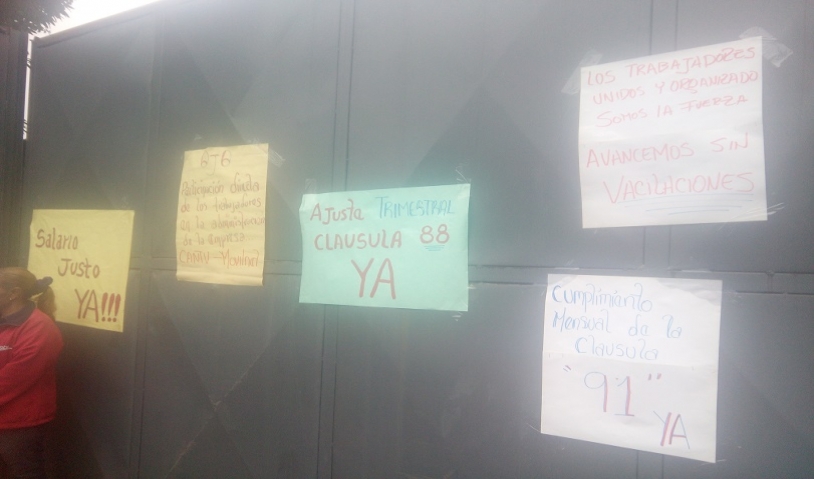 Salario
Justo
YA!!!
GTG
Participación directa
de los trabajadores
en la administración
de la empresa
AJUSTA TRIMESTRAL
CLAUSULA 88
YA
LOS TRABAJADORES
UNIDOS Y ORGANIZADO
SOMOS LA FUERZA
AVANCEMOS SIN
VACILACIONES
Cumplimiento
Mensual de la
Clausula
"91"
YA